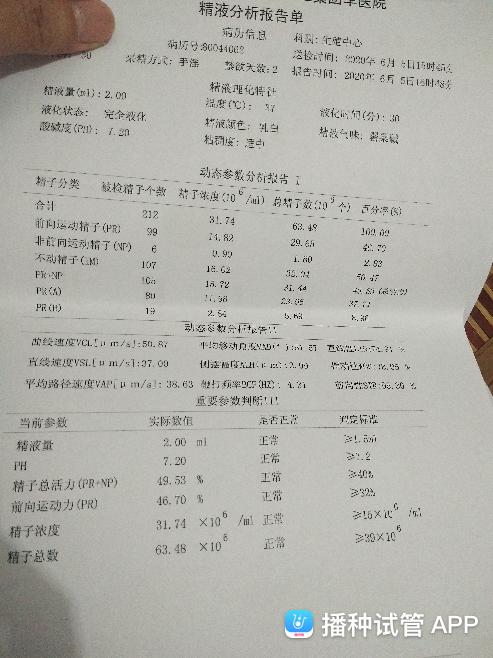 集团军医院
精液分析报告单
病历信息
科别: 生殖中心
病历号:S0044062
送检时间: 2020年 6月 5日15时45分
30
采精方式: 手淫
禁欲天数:2
报告时间: 2020年 6月 5日16时48分
精液理化特性
精液量(ml): 2.00
温度(℃): 37
液化时间(分): 30
液化状态: 完全液化
精液颜色: 乳白
精液气味: 罂粟碱
酸碱度(PH): 7.20
粘稠度: 适中
动态参数分析报告 I
精子分类 被检精子个数 精子浓度(10^6/ml) 总精子数(10^6个) 百分率(%)
合计 212 31.74 63.48 100.00
前向运动精子(PR) 99 14.82 29.65 46.70
非前向运动精子(NP) 6 0.90 1.80 2.83
不动精子(IM) 107 16.02 32.04 50.47
PR+NP 105 15.72 31.44
PR(A) 80 11.98 23.95 37.74
PR(B) 19 2.84 5.69 8.96
动态参数分析报告II
曲线速度VCL[μm/s]:50.87
直线速度VSL[μm/s]:37.00
平均路径速度VAP[μm/s]: 38.63
重要参数判断III
当前参数 实际数值 是否正常 判定标准
精液量 2.00 ml 正常 ≥1.5ml
PH 7.20 正常 ≥7.2
精子总活力(PR+NP) 49.53 % 正常 ≥40%
前向运动力(PR) 46.70 % 正常 ≥32%
精子浓度 31.74 ×10^6 /ml 正常 ≥15×10^6 /ml
精子总数 63.48 ×10^6 正常 ≥39×10^6
播种试管 APP